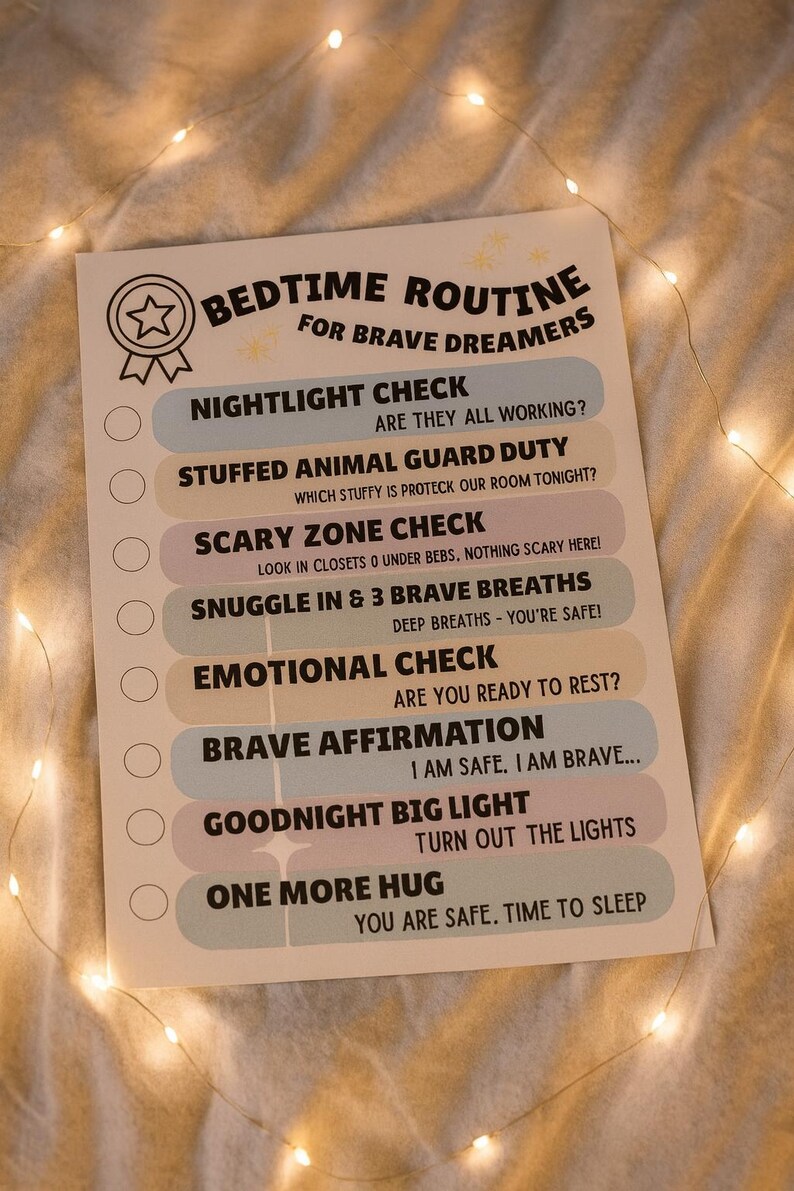 BEDTIME ROUTINE
FOR BRAVE DREAMERS
NIGHTLIGHT CHECK
ARE THEY ALL WORKING?
STUFFED ANIMAL GUARD DUTY
WHICH STUFFY IS PROTECK OUR ROOM TONIGHT?
SCARY ZONE CHECK
LOOK IN CLOSETS O UNDER BEBS, NOTHING SCARY HERE!
SNUGGLE IN & 3 BRAVE BREATHS
DEEP BREATHS - YOU'RE SAFE!
EMOTIONAL CHECK
ARE YOU READY TO REST?
BRAVE AFFIRMATION
I AM SAFE. I AM BRAVE...
GOODNIGHT BIG LIGHT
TURN OUT THE LIGHTS
ONE MORE HUG
YOU ARE SAFE. TIME TO SLEEP